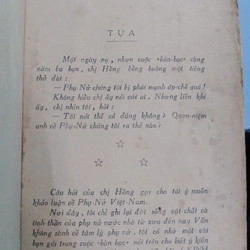 TỰA
Một ngày nọ, nhan cuộc «bàn-bạc» cùng
năm ba bạn, chị Hồng bỗng buông một tiếng
thở dài:
— Phụ-Nữ chúng tôi bị phái mạnh áp-chế quá!
Không hiểu chị ấy nói với ai. Nhưng liền khi
ấy, chị nhìn tôi, hỏi:
— Tôi nói thế có đúng không? Quan-niệm
anh về Phụ-Nữ chúng tôi ra thế nào?
Câu hỏi của chị Hồng gợi cho tôi ý muốn
khảo luận về Phụ-Nữ Việt-Nam.
Nơi đây, tôi chỉ ghi lại đời sống vật-chất và
tinh-thần của phụ-nữ nước nhà từ xưa đến nay. Vốn
không sành về tâm lý phụ-nữ, tôi có nhờ một vài
bạn gái trong cuộc «bàn-bạc» nói trên cho biết ý kiến